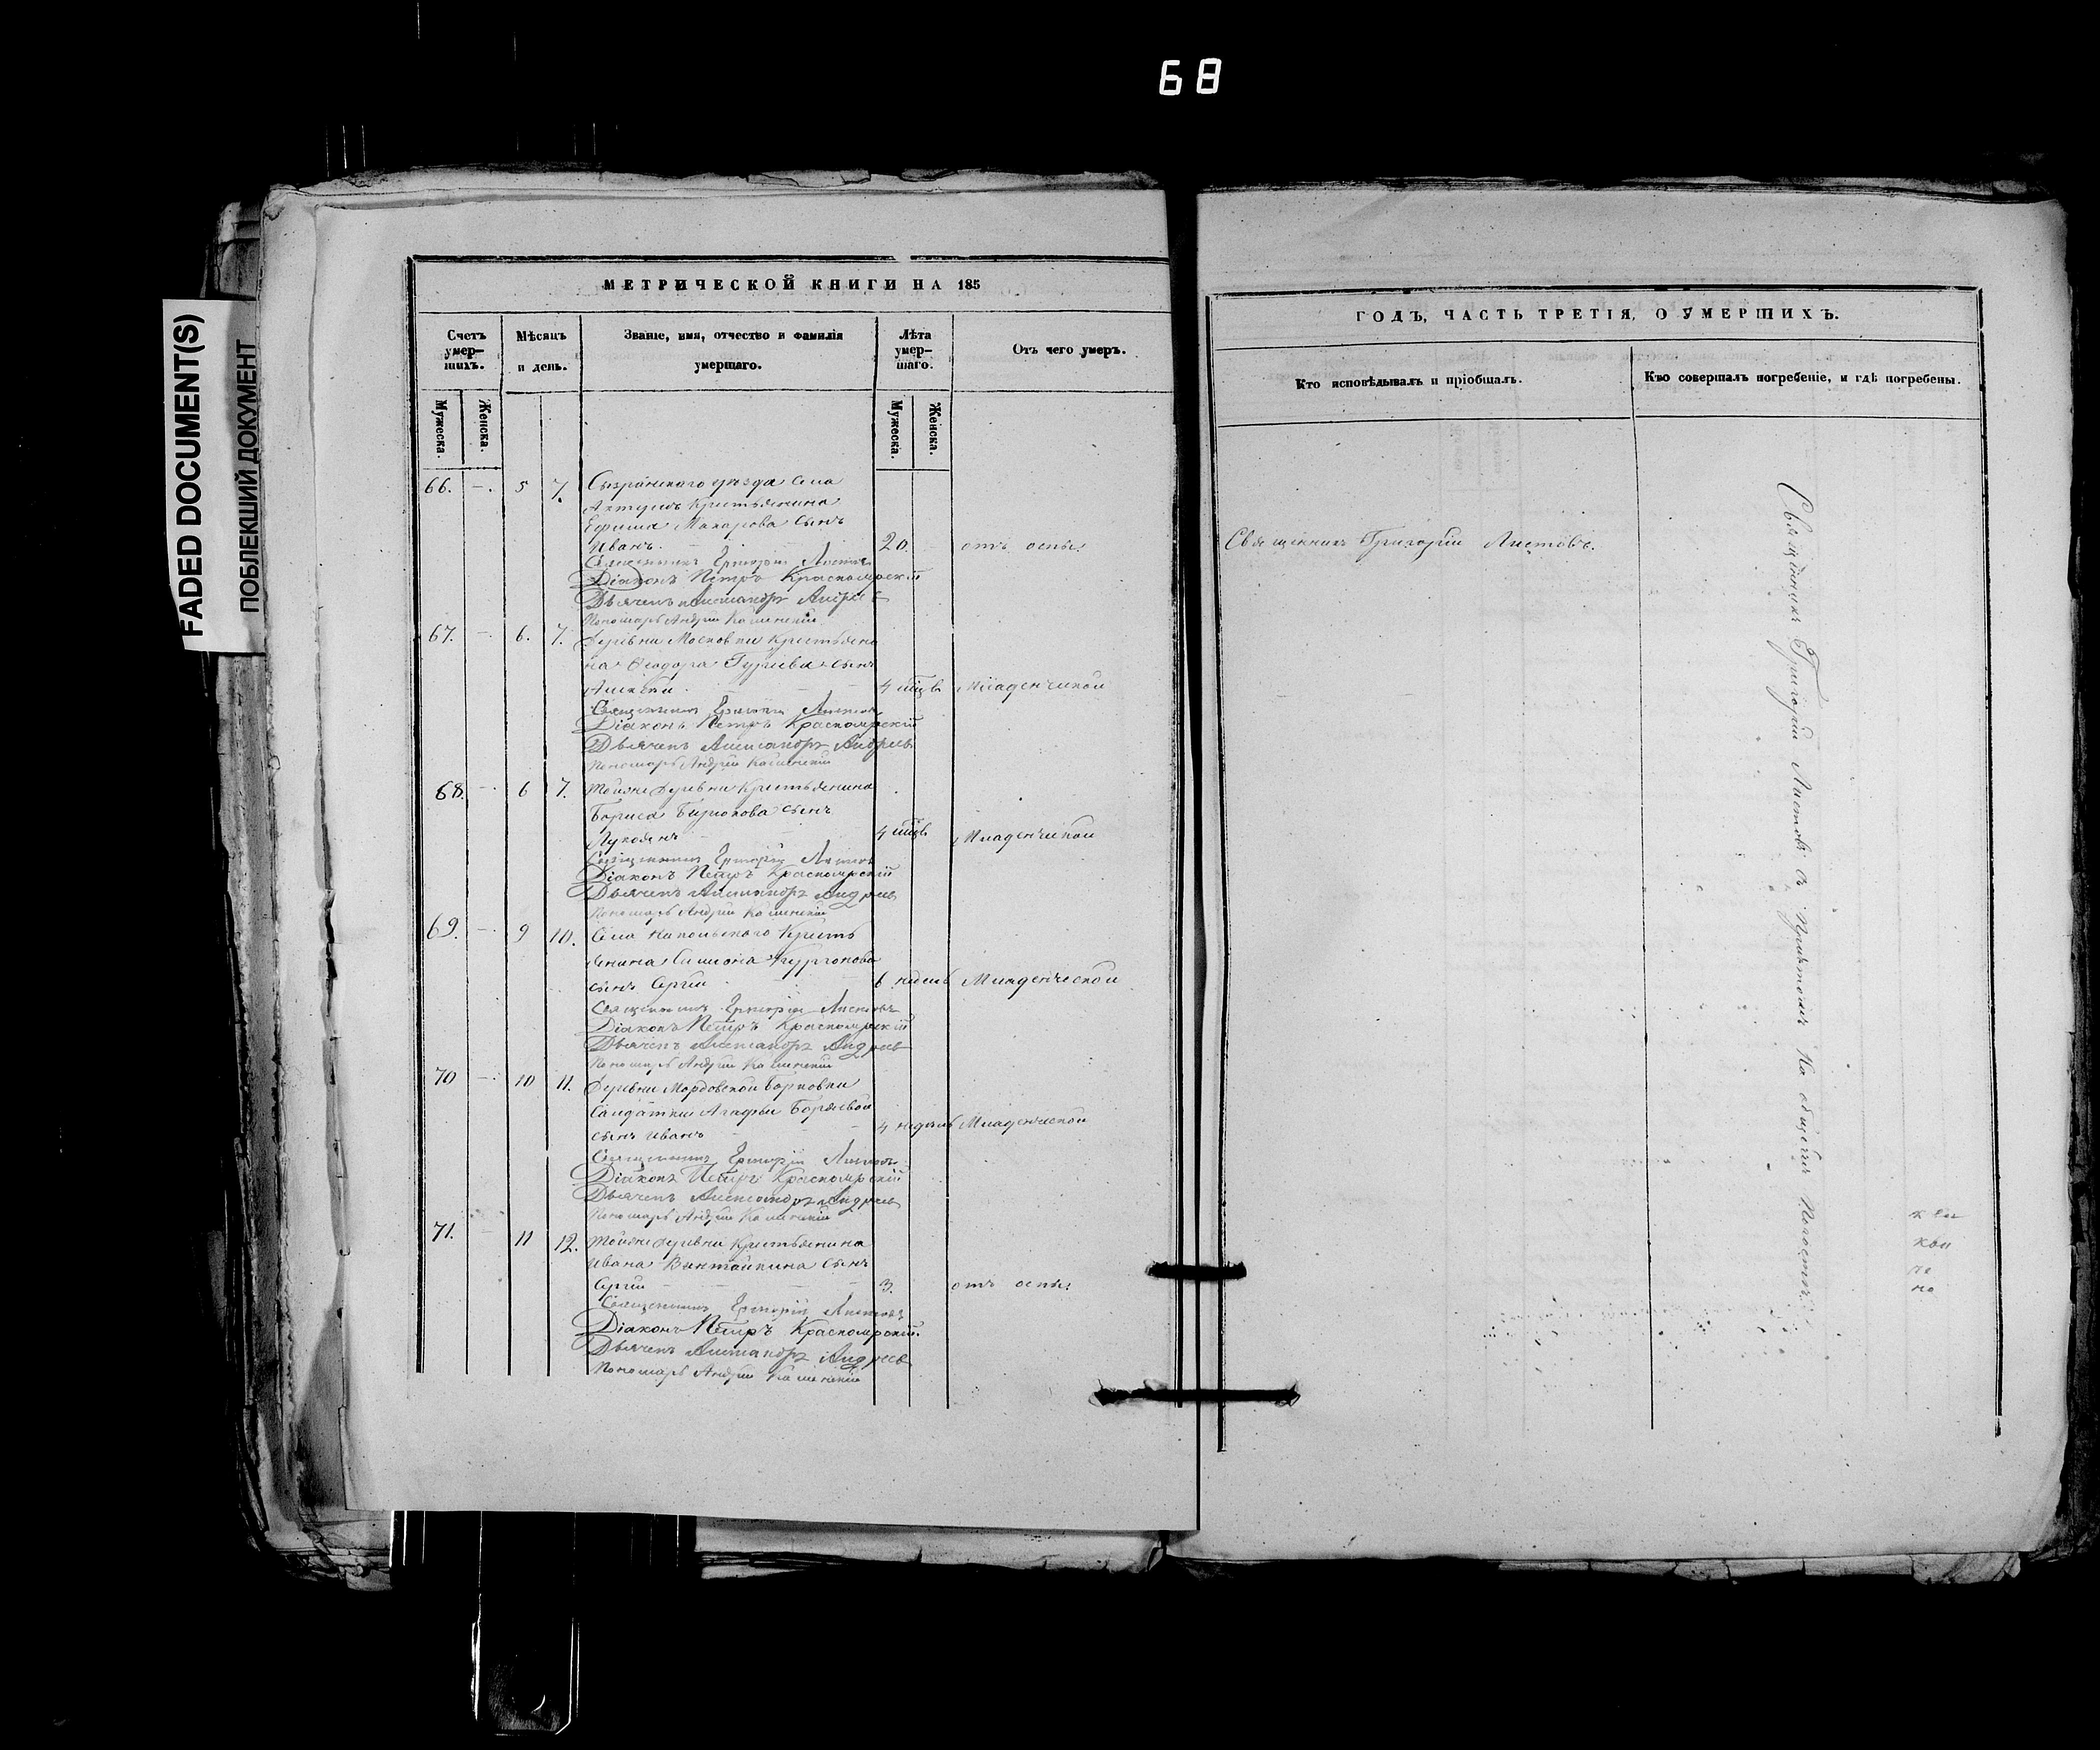 68
FADED DOCUMENT(S)
ПОБЛЕКШИЙ ДОКУМЕНТ
МЕТРИЧЕСКОЙ КНИГИ НА 185
Счетъ умер-шихъ.
Мѣсяцъ и день.
Званіе, имя, отчество и фамилія умершаго.
Лѣта умер-шаго.
Отъ чего умеръ.
Мужеска.
Женска.
Мужеска.
Женска.
66. — 5 7. Сызранскаго уѣзда села
Крестьянина
Ефима Макарова сынъ
Иванъ. 20. отъ оспы.
Священникъ Григорій Листовъ
Діаконъ Петръ Красноярскій
Дьячекъ Александръ Андреевъ
Пономарь Андрей Каменскій
67. — 6. 7. Деревни Московки Крестьяни
на Ѳеодора Гуріева сынъ
Алексѣй. 4 Младенческой
Священникъ Григорій Листовъ
Діаконъ Петръ Красноярскій
Дьячекъ Александръ Андреевъ
Пономарь Андрей Каменскій
68. — 6 7. Тойже деревни Крестьянина
Бориса Бирюкова сынъ
4 Младенческой
Священникъ Григорій Листовъ
Діаконъ Петръ Красноярскій
Дьячекъ Александръ Андреевъ
Пономарь Андрей Каменскій
69. — 9 10. Села Напольскаго Кресть
янина Симеона
сынъ Сергій 6 недель Младенческой
Священникъ Григорій Листовъ
Діаконъ Петръ Красноярскій
Дьячекъ Александръ Андреевъ
Пономарь Андрей Каменскій
70 — 10 11. Деревни Мордовской Борковки
Солдатки Агафьи
сынъ Иванъ 4 недель Младенческой
Священникъ Григорій Листовъ
Діаконъ Петръ Красноярскій
Дьячекъ Александръ Андреевъ
Пономарь Андрей Каменскій
71. — 11 12. Тойже деревни Крестьянина
Ивана сынъ
Сергій 3. отъ оспы.
Священникъ Григорій Листовъ
Діаконъ Петръ Красноярскій.
Дьячекъ Александръ Андреевъ
Пономарь Андрей Каменскій
ГОДЪ, ЧАСТЬ ТРЕТІЯ, О УМЕРШИХЪ.
Кто исповѣдывалъ и пріобщалъ.
Кто совершалъ погребеніе, и гдѣ погребены.
Священникъ Григорій Листовъ.
Священникъ Григорій Листовъ съ Причтомъ На общемъ Погостѣ.